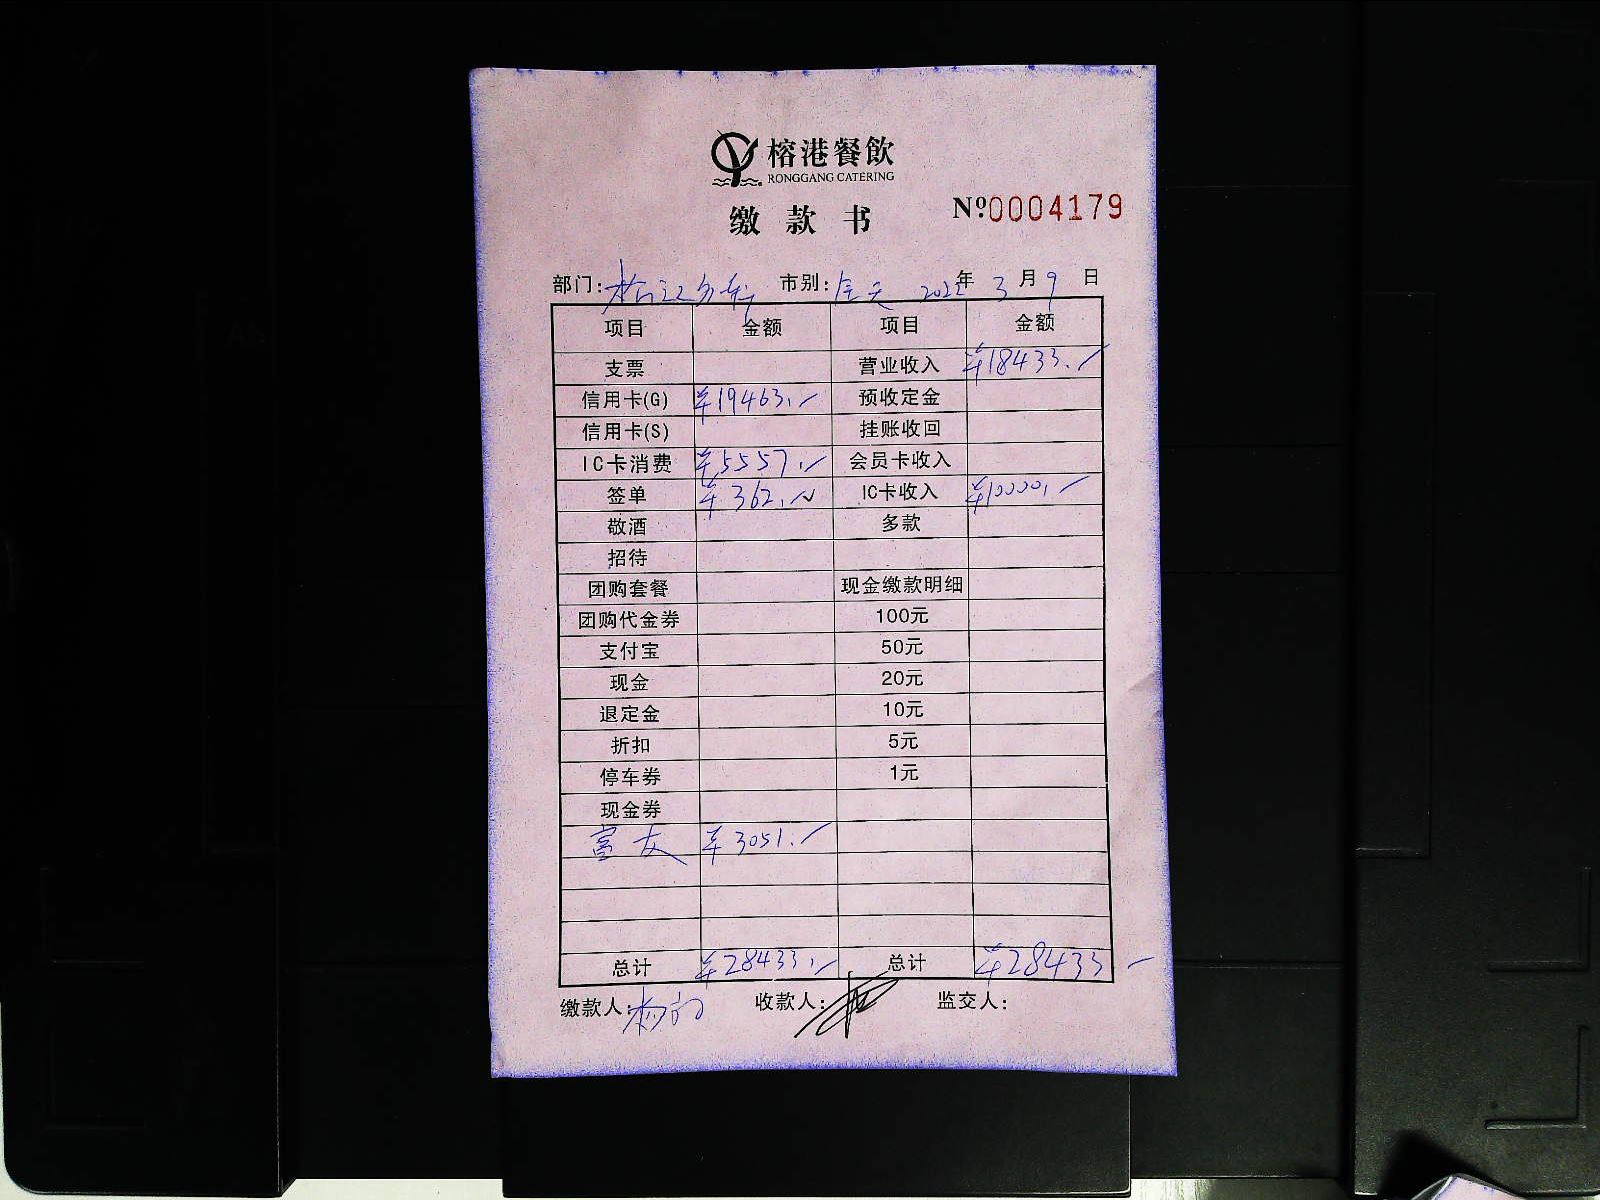 榕港餐飲
RONGGANG CATERING
缴款书 Nº0004179
部门: 市别:全天 2022年3月9日
项目 金额 项目 金额
支票 营业收入 ¥18433.
信用卡(G) ¥19463. 预收定金
信用卡(S) 挂账收回
IC卡消费 ¥5557. 会员卡收入
签单 ¥362. IC卡收入 ¥10000.
敬酒 多款
招待
团购套餐 现金缴款明细
团购代金券 100元
支付宝 50元
现金 20元
退定金 10元
折扣 5元
停车券 1元
现金券
富友 ¥3051.
总计 ¥28433. 总计 ¥28433
缴款人: 收款人: 监交人: